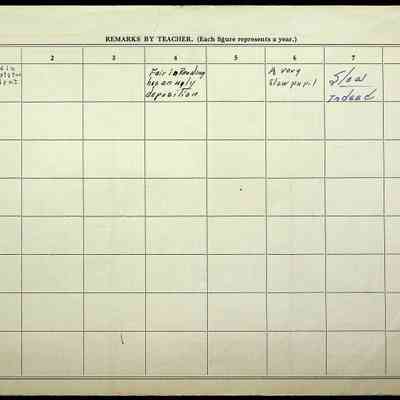 REMARKS BY TEACHER. (Each figure represents a year.)
2 3 4 5 6 7
Fair in Reading
has an ugly
deposition
A very
slow pupil
Slow
Indeed